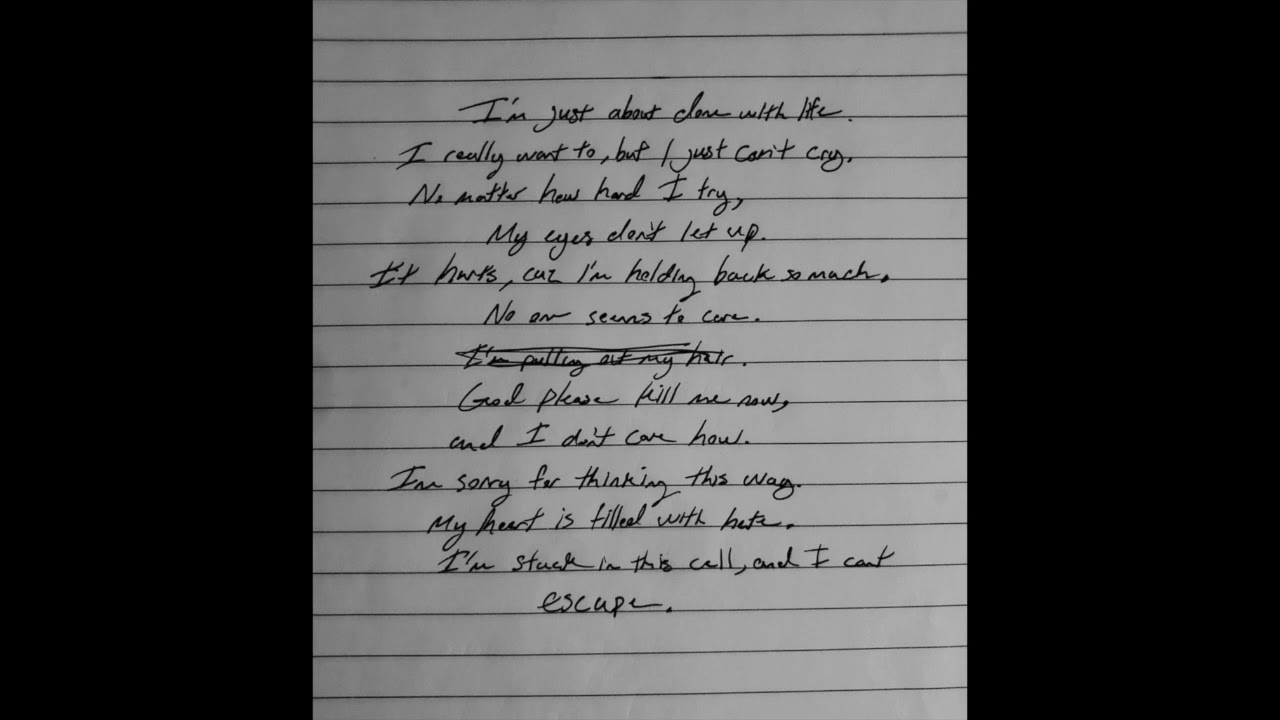 I'm just about done with life.
I really want to, but I just can't cry.
No matter how hard I try,
My eyes don't let up.
It hurts, cuz I'm holding back so much.
No one seems to care.
I'm pulling out my hair.
God please kill me now,
and I don't care how.
I'm sorry for thinking this way.
My heart is filled with hate.
I'm stuck in this cell, and I can't
escape.